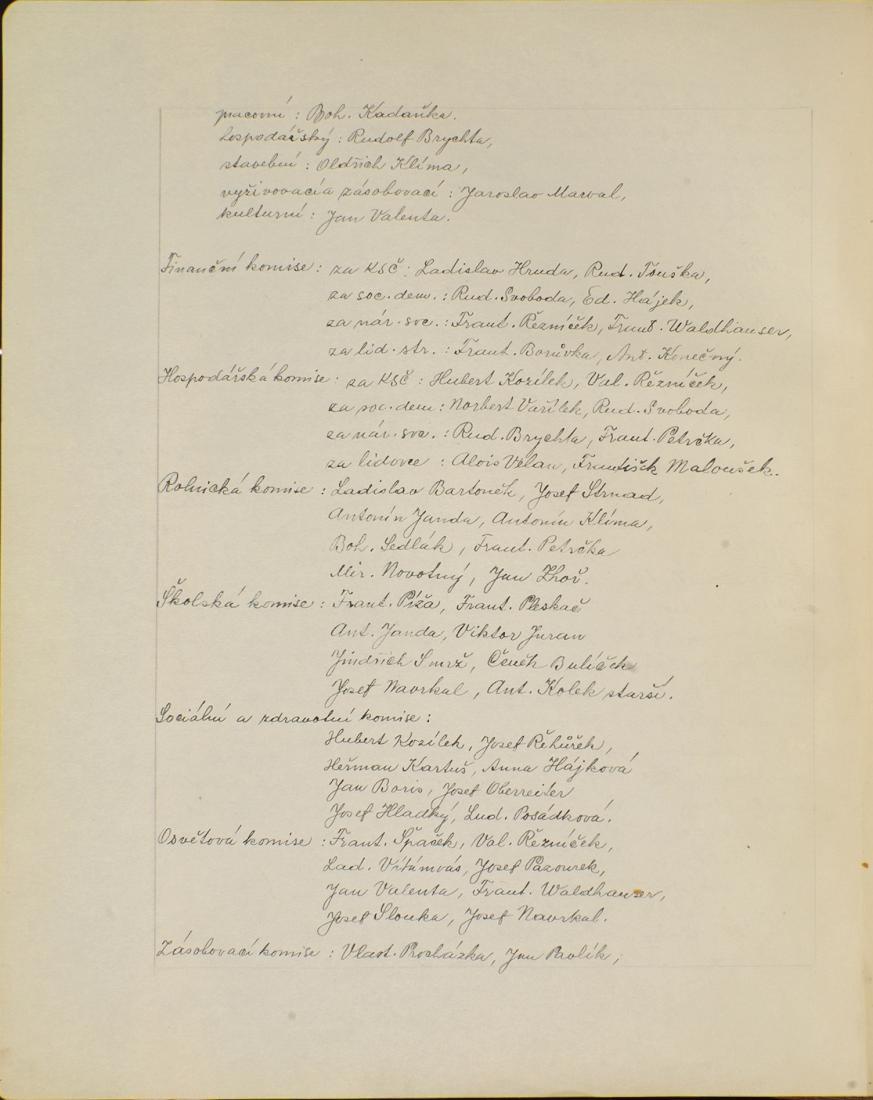 pracovní : Boh. Kadaňka.
hospodářský : Rudolf Brychta,
stavební : Oldřich Klíma,
vyživovací a zásobovací : Jaroslav Marval,
kulturní : Jan Valenta.
Finanční komise : za KSČ : Ladislav Hruda, Rud. Touška,
za soc. dem. : Rud. Svoboda, Ed. Hájek,
za nár. soc. : Frant. Řezníček, Frant. Waldhauser,
za lid. str. : Frant. Borůvka, Ant. Konečný.
Hospodářská komise : za KSČ : Hubert Kozílek, Val. Řezníček,
za soc. dem : Norbert Vašílek, Rud. Svoboda,
za nár. soc. : Rud. Brychta, Frant. Petrčka,
za lidovce : Alois Vrlan, František Maloušek.
Rolnická komise : Ladislav Bartoněk, Josef Strnad,
Antonín Janda, Antonín Klíma,
Boh. Sedlák, Frant. Petrčka
Mir. Novotný, Jan Zhoř.
Školská komise : Frant. Píža, Frant. Pleskač
Ant. Janda, Viktor Juran
Jindřich Smrž, Čeněk Bulíček
Josef Navrkal, Ant. Kolek starší.
Sociální a zdravotní komise :
Hubert Kozílek, Josef Řehůřek,
Heřman Kartuš, Anna Hájková
Jan Boris, Josef Oberreiter
Josef Hladký, Lud. Posádková.
Osvětová komise : Frant. Špaček, Val. Řezníček,
Lad. Vítámvás, Josef Pazourek,
Jan Valenta, Frant. Waldhauser,
Josef Slouka, Josef Navrkal.
Zásobovací komise : Vlast. Procházka, Jan Pavlík,